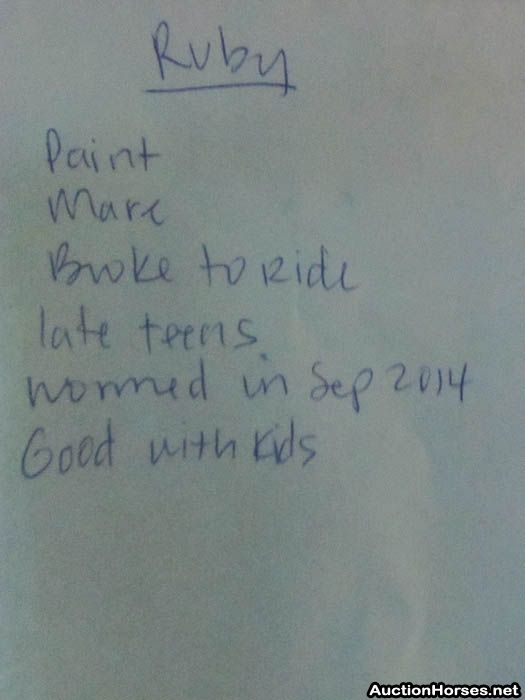 Ruby
Paint
Mare
Broke to Ride
late teens
wormed in Sep 2014
Good with kids
AuctionHorses.net